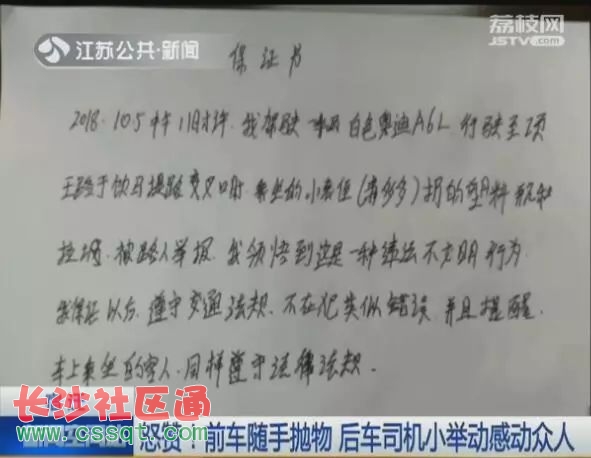 江苏公共·新闻
荔枝网
JSTV.com
保证书
2018.10.5中午11点半.我驾驶 白色奥迪A6L.行驶至项
王路于饮马堤路交叉口时.乘坐的小 (多多)扔的塑料瓶和
垃圾.被路人举报.我领悟到这是一种违法不文明行为
我保证以后.遵守交通法规.不在犯类似错误.并且提醒.
车上乘坐的客人.同样遵守法律法规.
长沙社区通
www.cssqt.com
怒赞！前车随手抛物 后车司机小举动感动众人